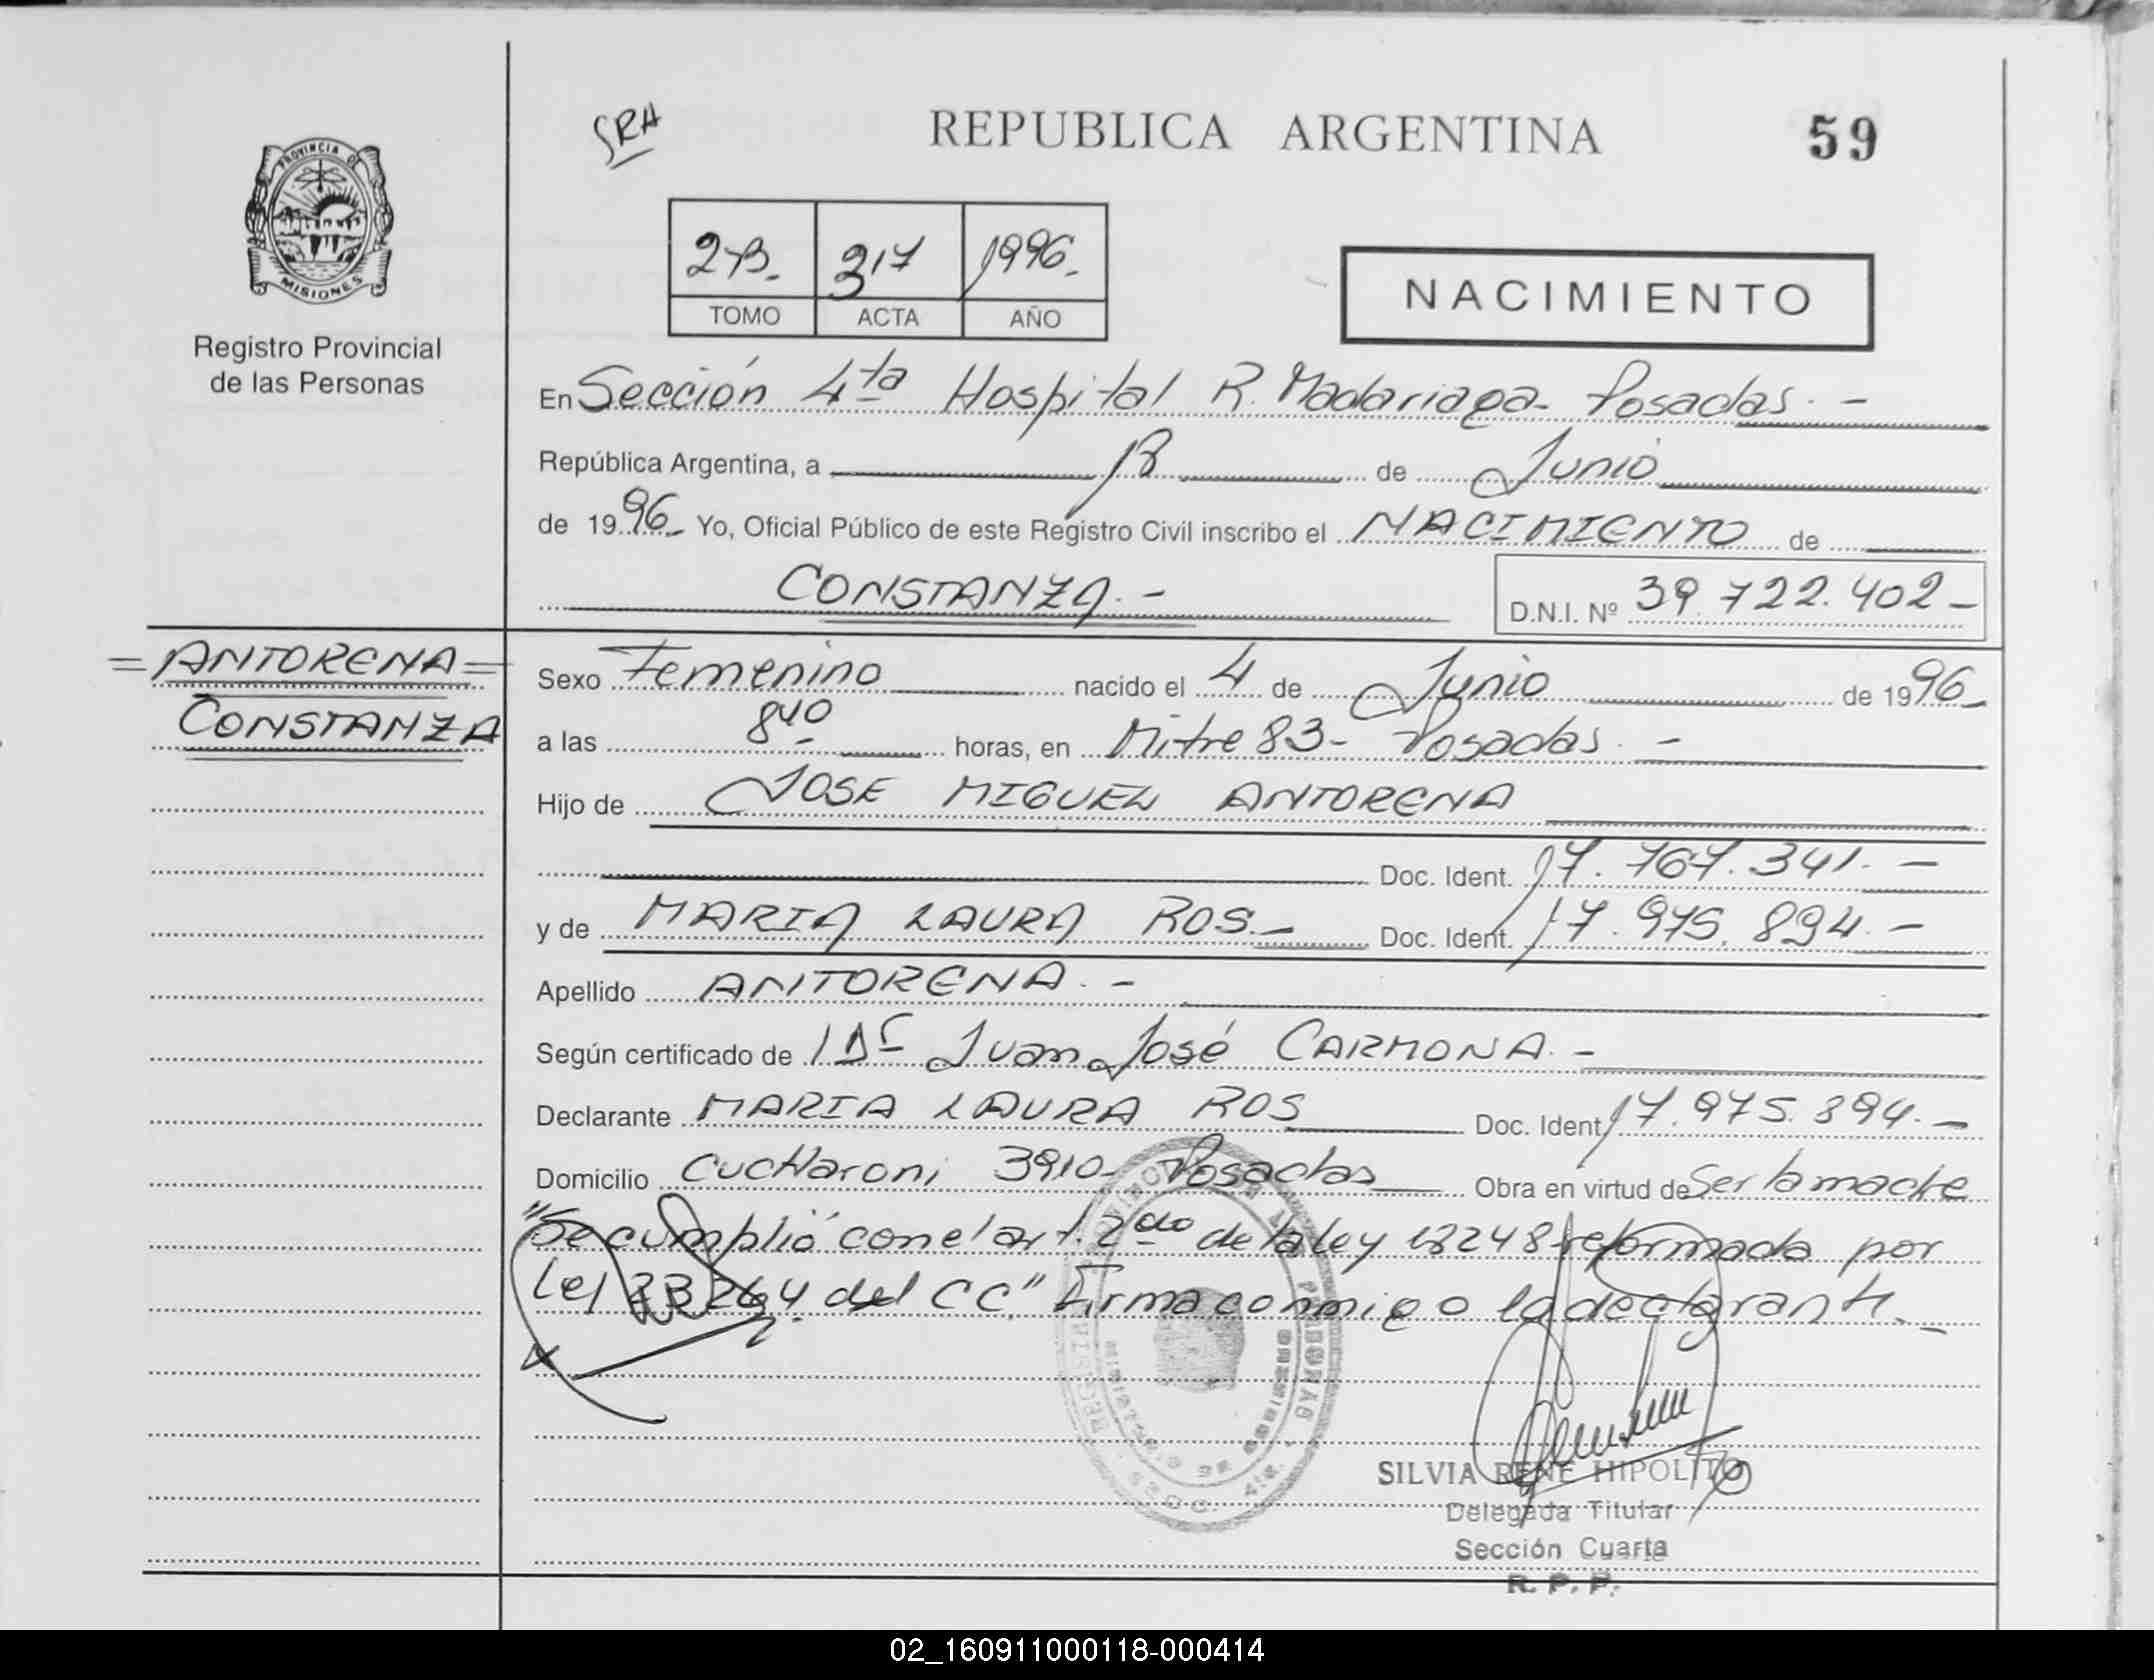 SRH
REPUBLICA ARGENTINA
59
PROVINCIA DE
MISIONES
Registro Provincial
de las Personas
317 1996.
TOMO ACTA AÑO
NACIMIENTO
En Sección 4ta Hospital R. Madariaga - Posadas. -
República Argentina, a de Junio
de 1996 - Yo, Oficial Público de este Registro Civil inscribo el NACIMIENTO de
CONSTANZA. -
D.N.I. Nº 39.722.402 -
= ANTORENA =
CONSTANZA
Sexo Femenino nacido el 4 de Junio de 1996 -
a las 8 horas, en Mitre 83 - Posadas. -
Hijo de JOSE MIGUEL ANTORENA
Doc. Ident. 17.767.341. -
y de MARIA LAURA ROS. - Doc. Ident. 17.975.894. -
Apellido ANTORENA. -
Según certificado de Juan José CARMONA. -
Declarante MARIA LAURA ROS Doc. Ident. 17.975.894. -
Domicilio 3910 - Posadas Obra en virtud de Ser la madre
"Se cumplió con el art. 2do de la ley 18248 reformada por
Ley 23264 del CC" Firma conmigo la declarante. -
SILVIA RENE HIPOLITO
Delegada Titular
Sección Cuarta
R. P. P.
02_160911000118-000414